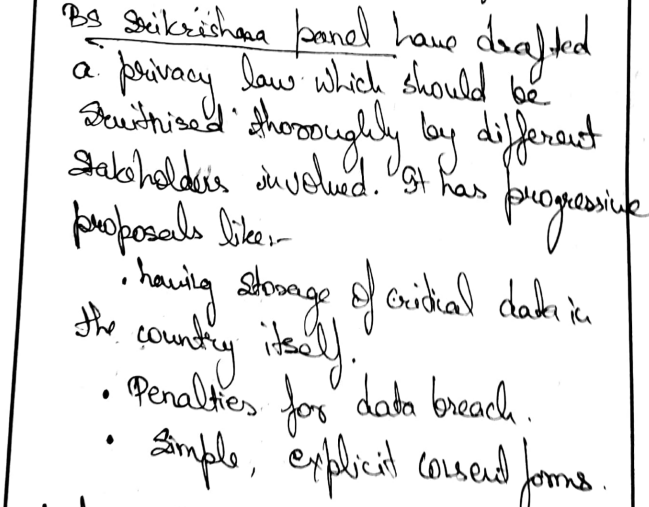 BS Srikrishna panel have drafted
a privacy law which should be
scruitnised thoroughly by different
stakeholders involved. It has progressive
proposals like:-
• having storage of critical data in
the country itself.
• Penalties for data breach.
• Simple, explicit consent forms.